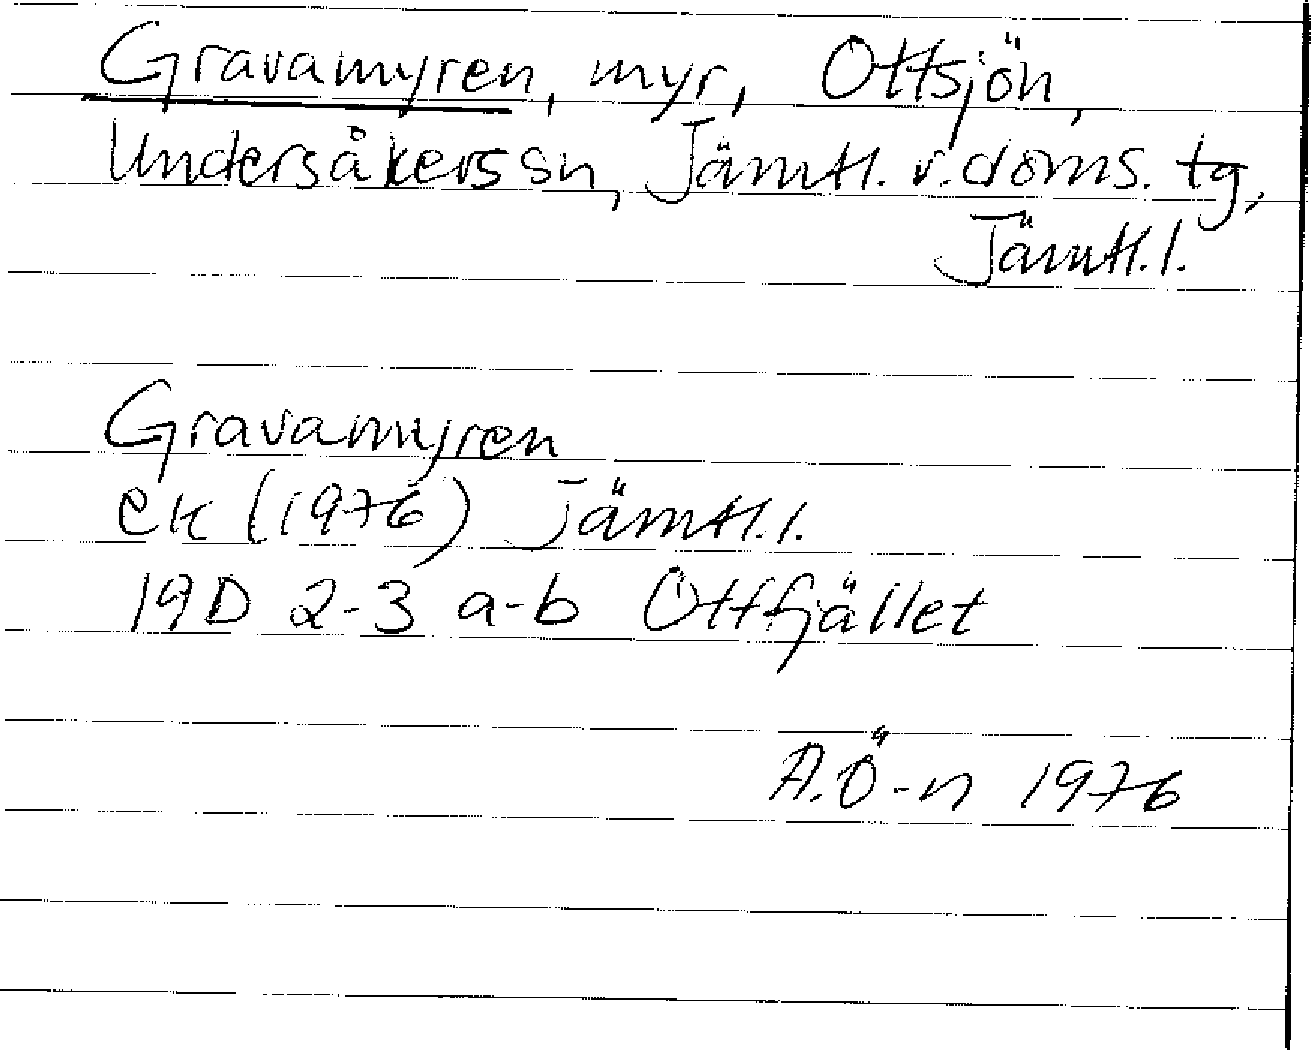 Gravamyren, myr, Ottsjön,
Undersåkers sn, Jämtl. v. doms. tg,
Jämtl. l.
Gravamyren
ek (1976) Jämtl. l.
19D 2-3 a-b Ottfjället
A. Ö-n 1976